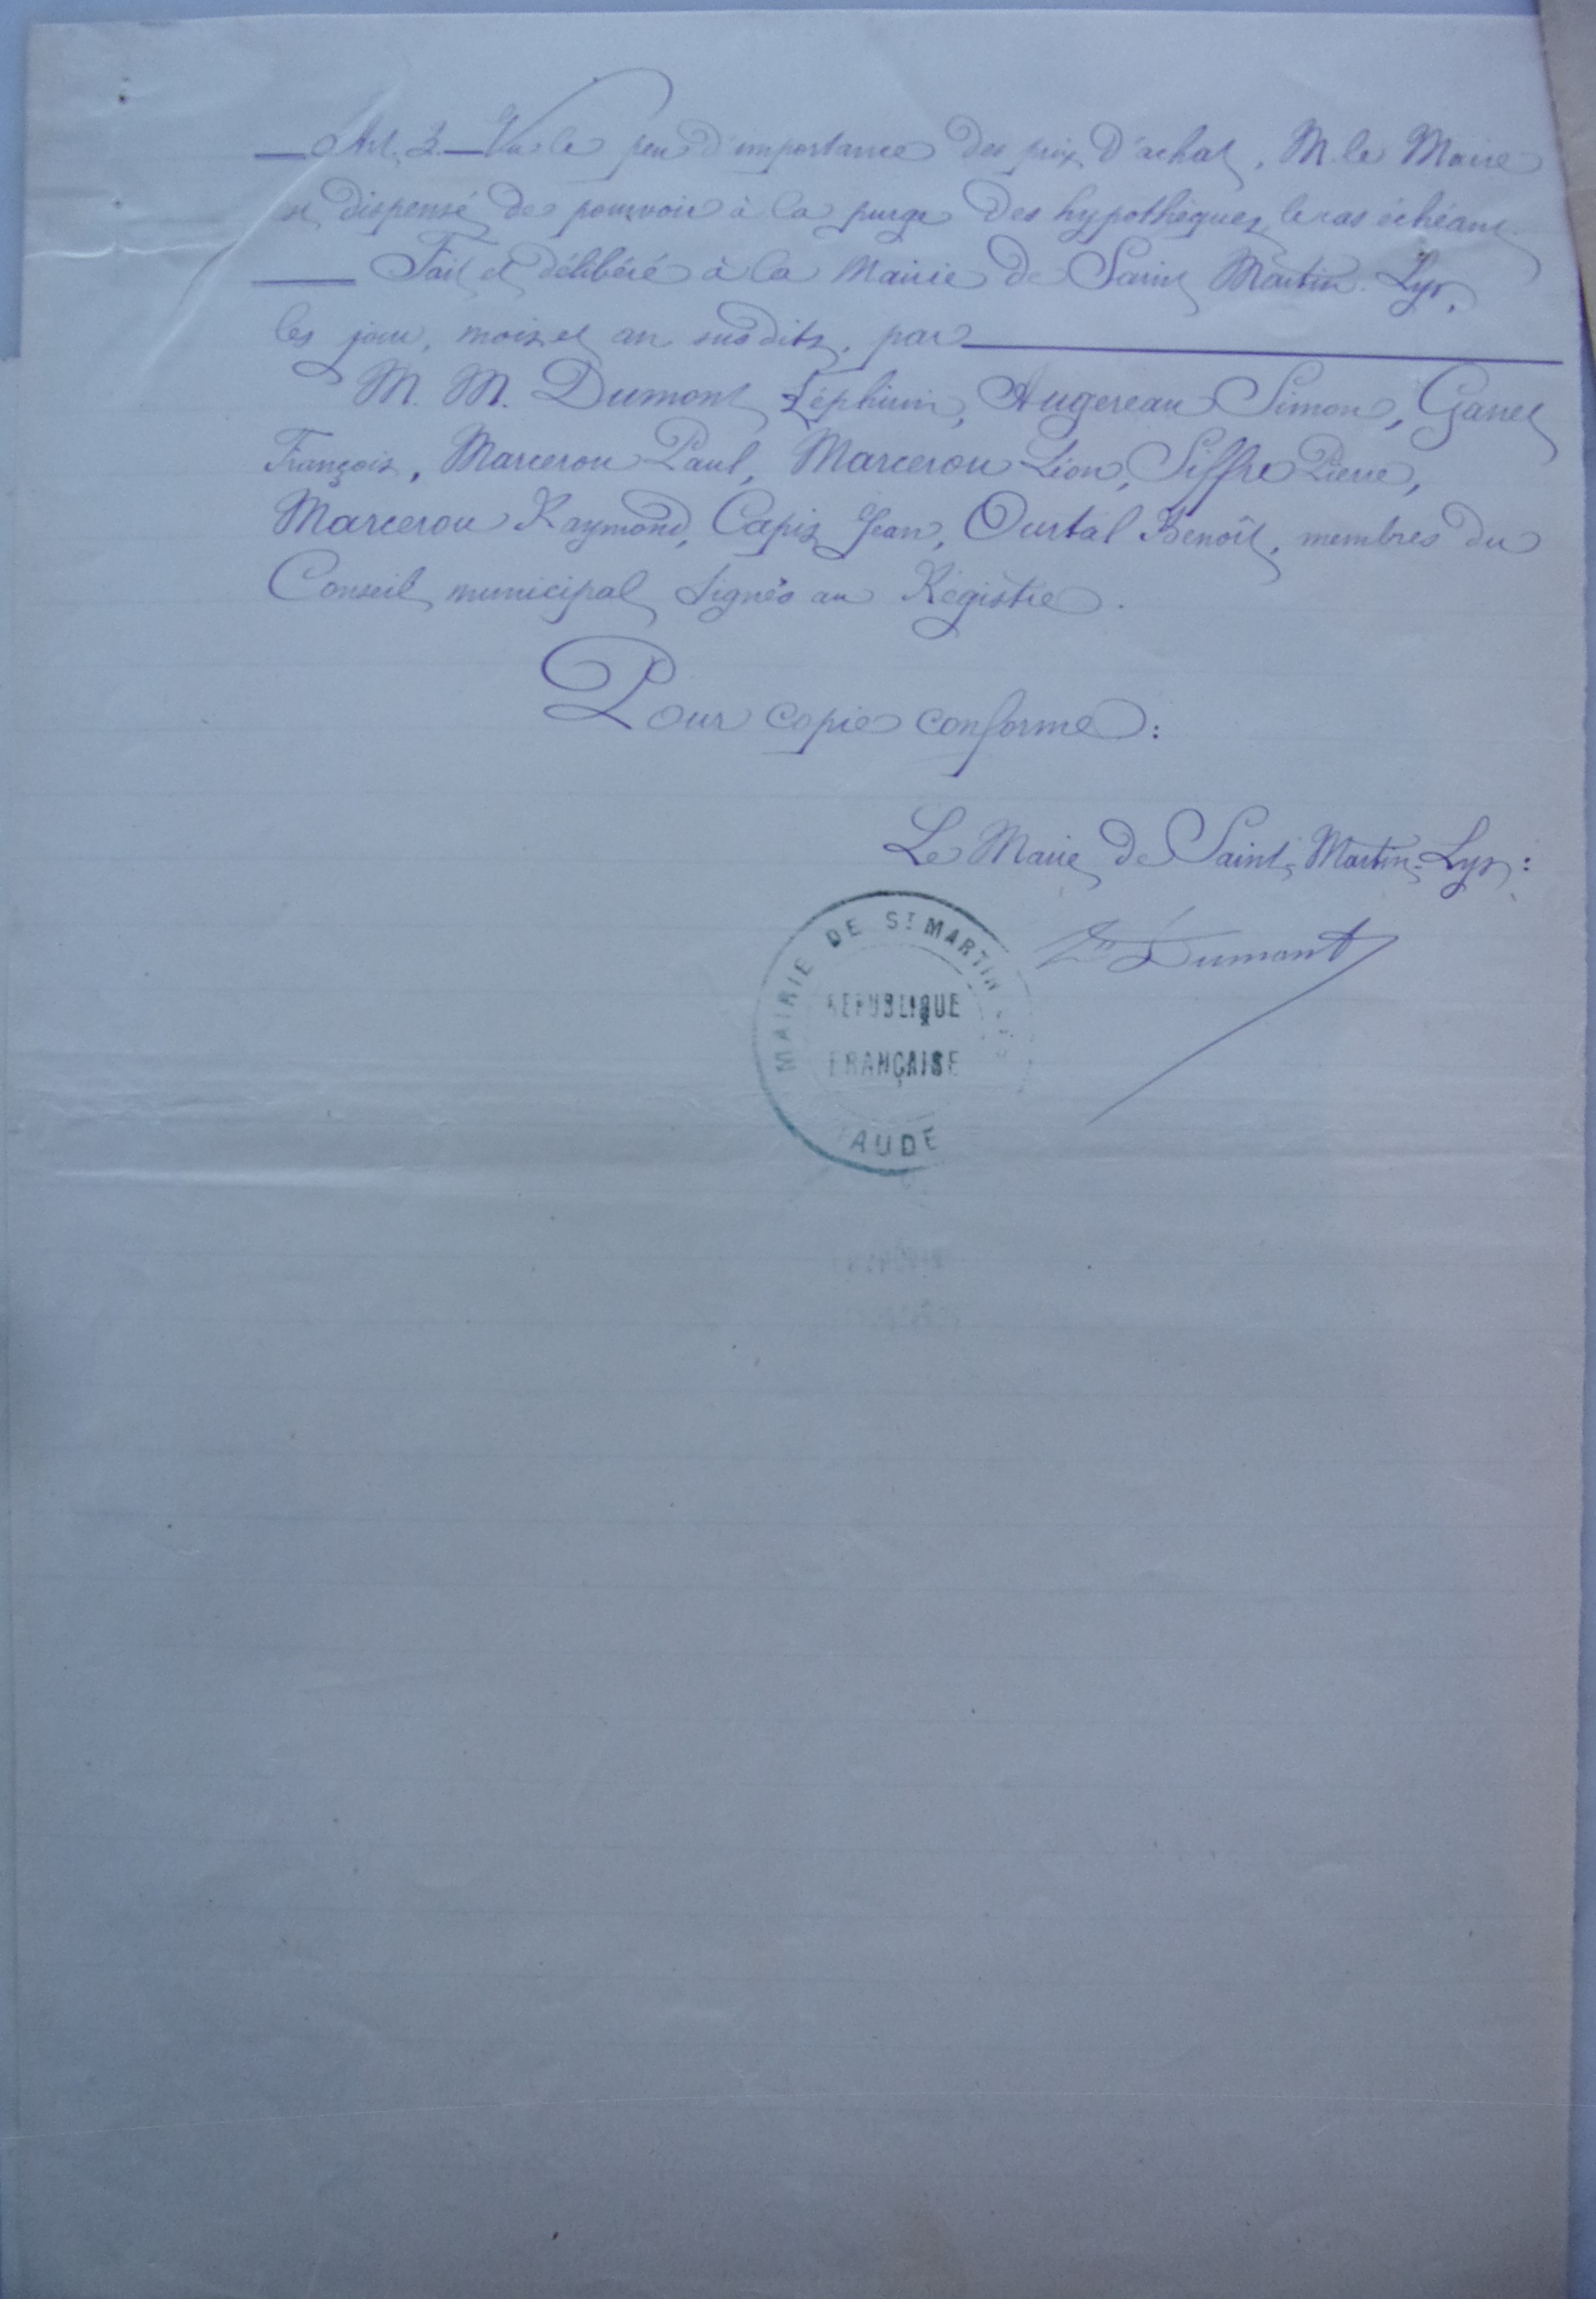 Art. 3. — Vu le peu d'importance des prix d'achat, M. le Maire
est dispensé de pourvoir à la purge des hypothèques, le cas échéant.
Fait et délibéré à la Mairie de Saint Martin-Lys,
les jour, mois et an susdits, par
M. M. Dumont Zéphirin, Augereau Simon, Ganet
François, Marcerou Paul, Marcerou Léon, Siffre Pierre,
Marcerou Raymond, Capis Jean, Ourtal Benoît, membres du
Conseil municipal signés au Régistre.
Pour copie conforme :
Le Maire de Saint-Martin-Lys :
Dumont
MAIRIE DE ST MARTIN LYS
RÉPUBLIQUE
FRANÇAISE
AUDE